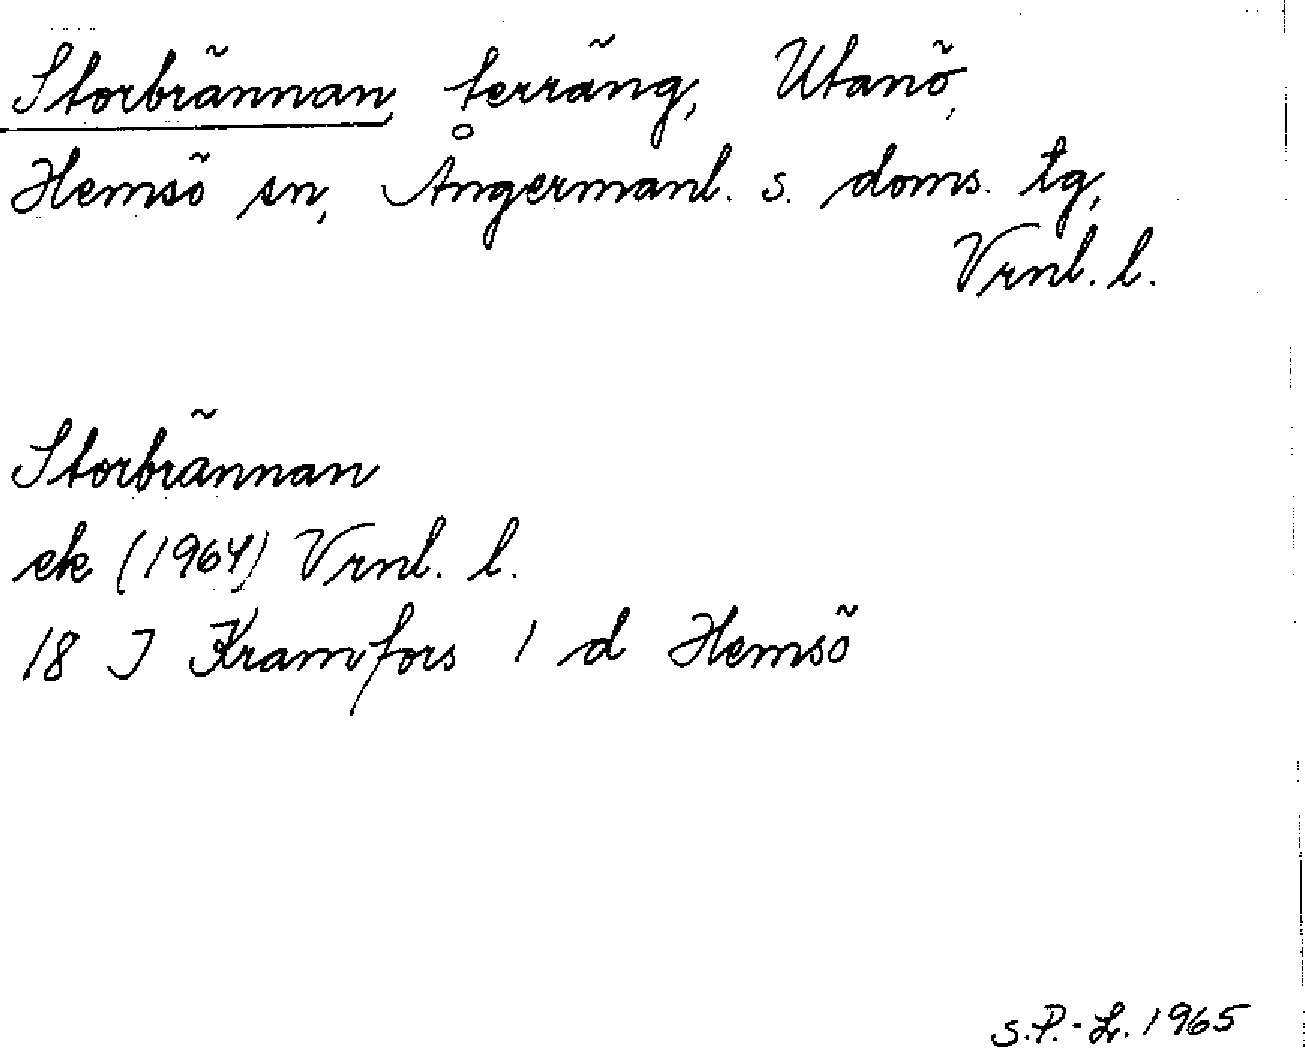 Storbrännan, terräng, Utanö,
Hemsö sn, Ångermanl. s. doms. tg,
Vrnl. l.
Storbrännan
ek (1964) Vrnl. l.
18 I Kramfors 1 d Hemsö
S.P.-L. 1965